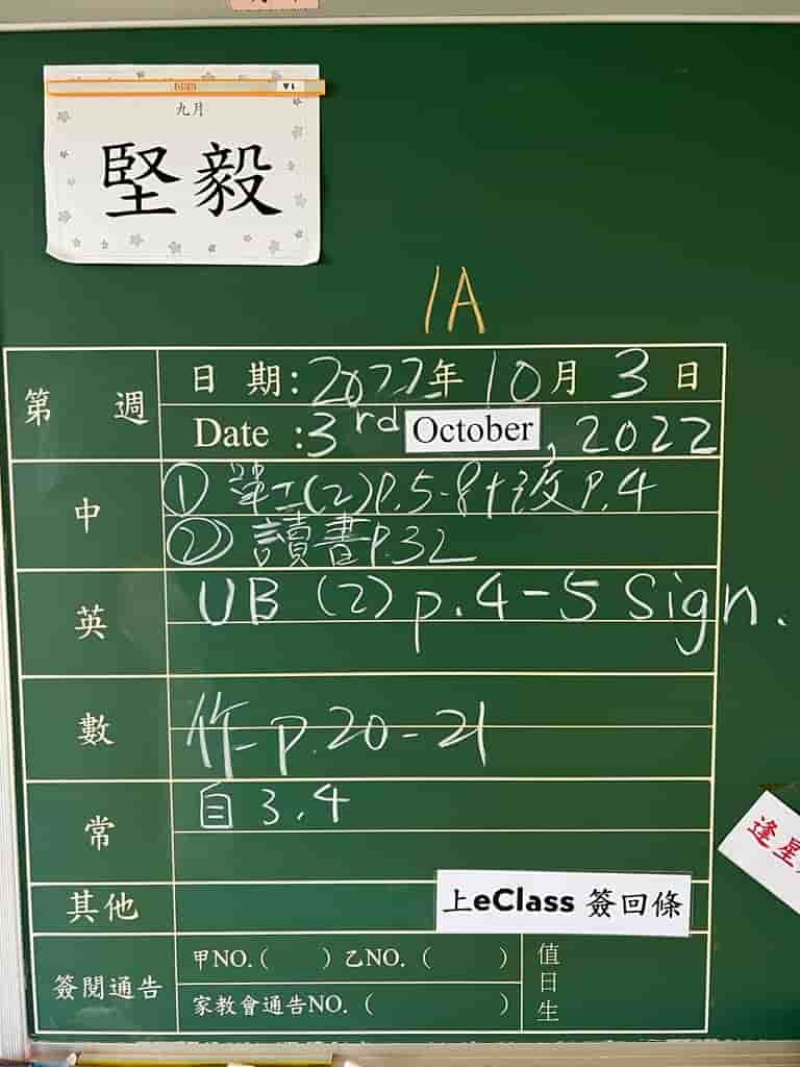 九月
堅毅
1A
第 週
日 期:2022年 10月 3日
Date :3rd October, 2022
中
① 單二(2)P.5-8+改P.4
② 讀書P.32
英
UB (2) p.4-5 Sign.
數
作-p.20-21
常
自3.4
其他
上eClass 簽回條
簽閱通告
甲NO.( ) 乙NO.( )
家教會通告NO.( )
值日生
逢星